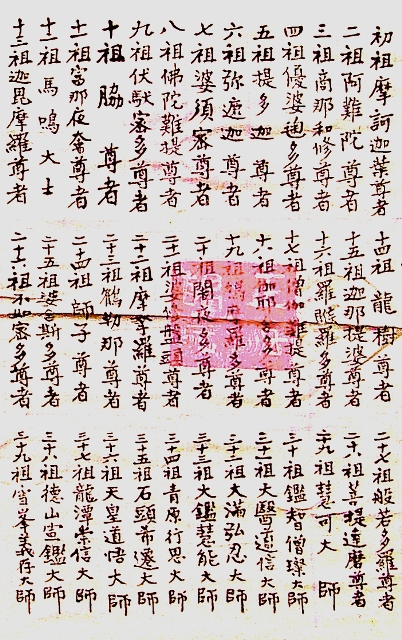 初祖摩訶迦葉尊者
二祖阿難陀尊者
三祖商那和修尊者
四祖優婆连多尊者
五祖提多迦尊者
六祖弥遮迦尊者
七祖婆須密尊者
八祖佛陀難提尊者
九祖伏馱密多尊者
十祖脇尊者
十一祖富那夜奢尊者
十二祖馬鳴大士
十三祖迦毘摩羅尊者
十四祖龍樹尊者
十五祖迦那提婆尊者
十六祖羅睺羅多尊者
十七祖僧伽難提尊者
十八祖伽耶多尊者
十九祖鳩摩羅多尊者
二十祖闍夜多尊者
二十一祖婆盤頭尊者
二十二祖摩拏羅尊者
二十三祖鶴勒那尊者
二十四祖師子尊者
二十五祖婆舍斯多尊者
二十六祖不如密多尊者
二十七祖般若多羅尊者
二十八祖菩提達磨尊者
二十九祖慧可大師
三十祖鑑智僧璨大師
三十一祖大醫道信大師
三十二祖大滿弘忍大師
三十三祖大鑑慧能大師
三十四祖青原行思大師
三十五祖石頭希遷大師
三十六祖天皇道悟大師
三十七祖龍潭崇信大師
三十八祖德山宣鑑大師
三十九祖雪峯義存大師